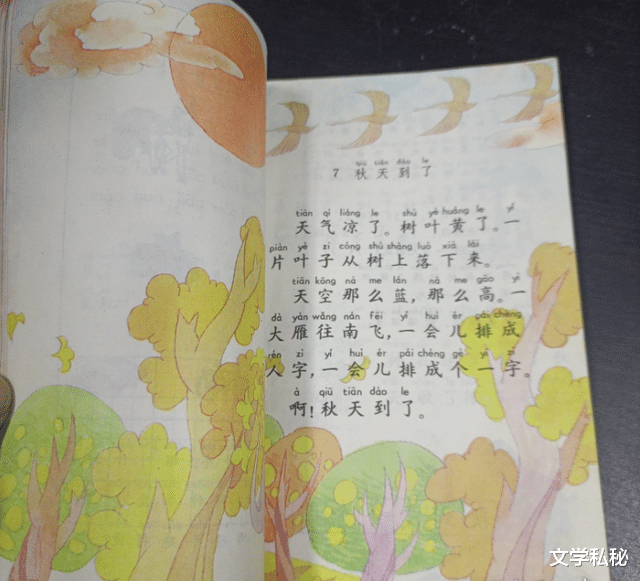 qiū tiān dào le
7 秋天到了
tiān qì liáng le shù yè huáng le yí
天气凉了。树叶黄了。一
piàn yè zi cóng shù shàng luò xià lái
片叶子从树上落下来。
tiān kōng nà me lán nà me gāo yì
天空那么蓝,那么高。一
dà yàn wǎng nán fēi yí huì ér pái chéng
大雁往南飞,一会儿排成
rén zì yí huì ér pái chéng gè yī zì
人字,一会儿排成个一字。
à qiū tiān dào le
啊!秋天到了。
文学私秘